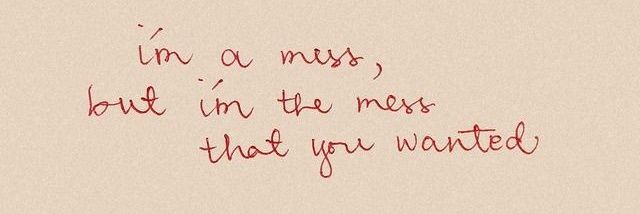 i'm a mess,
but i'm the mess
that you wanted